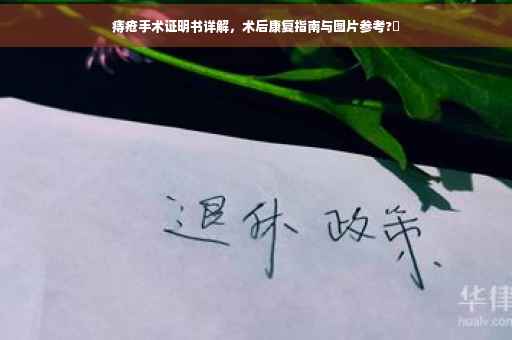 痔疮手术证明书详解，术后康复指南与图片参考?
退休 政策
华律
hualv.com